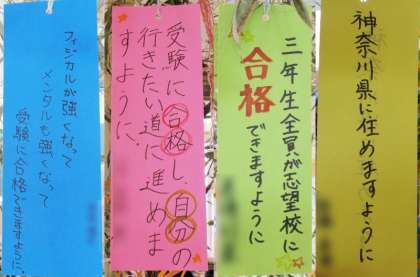 フィジカルが強くなって
メンタルも強くなって
受験に合格できますように、
受験に合格し、自分の
行きたい道に進めま
すように、
三年生全員が志望校に
合格できますように
神奈川県に住めますように